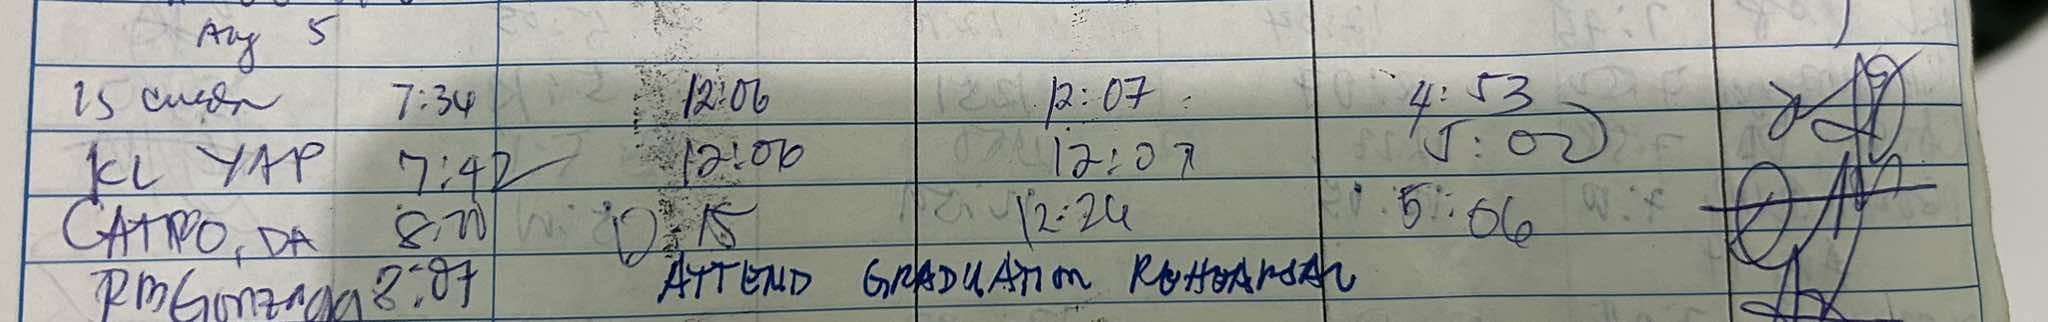 Aug 5
7:34 12:06 12:07 4:53
KL YAP 7:42 12:06 12:07 5:02
CATRO, DA 12:24 5:06
RB Gonzaga 8:07 ATTEND GRADUATION REHEARSAL